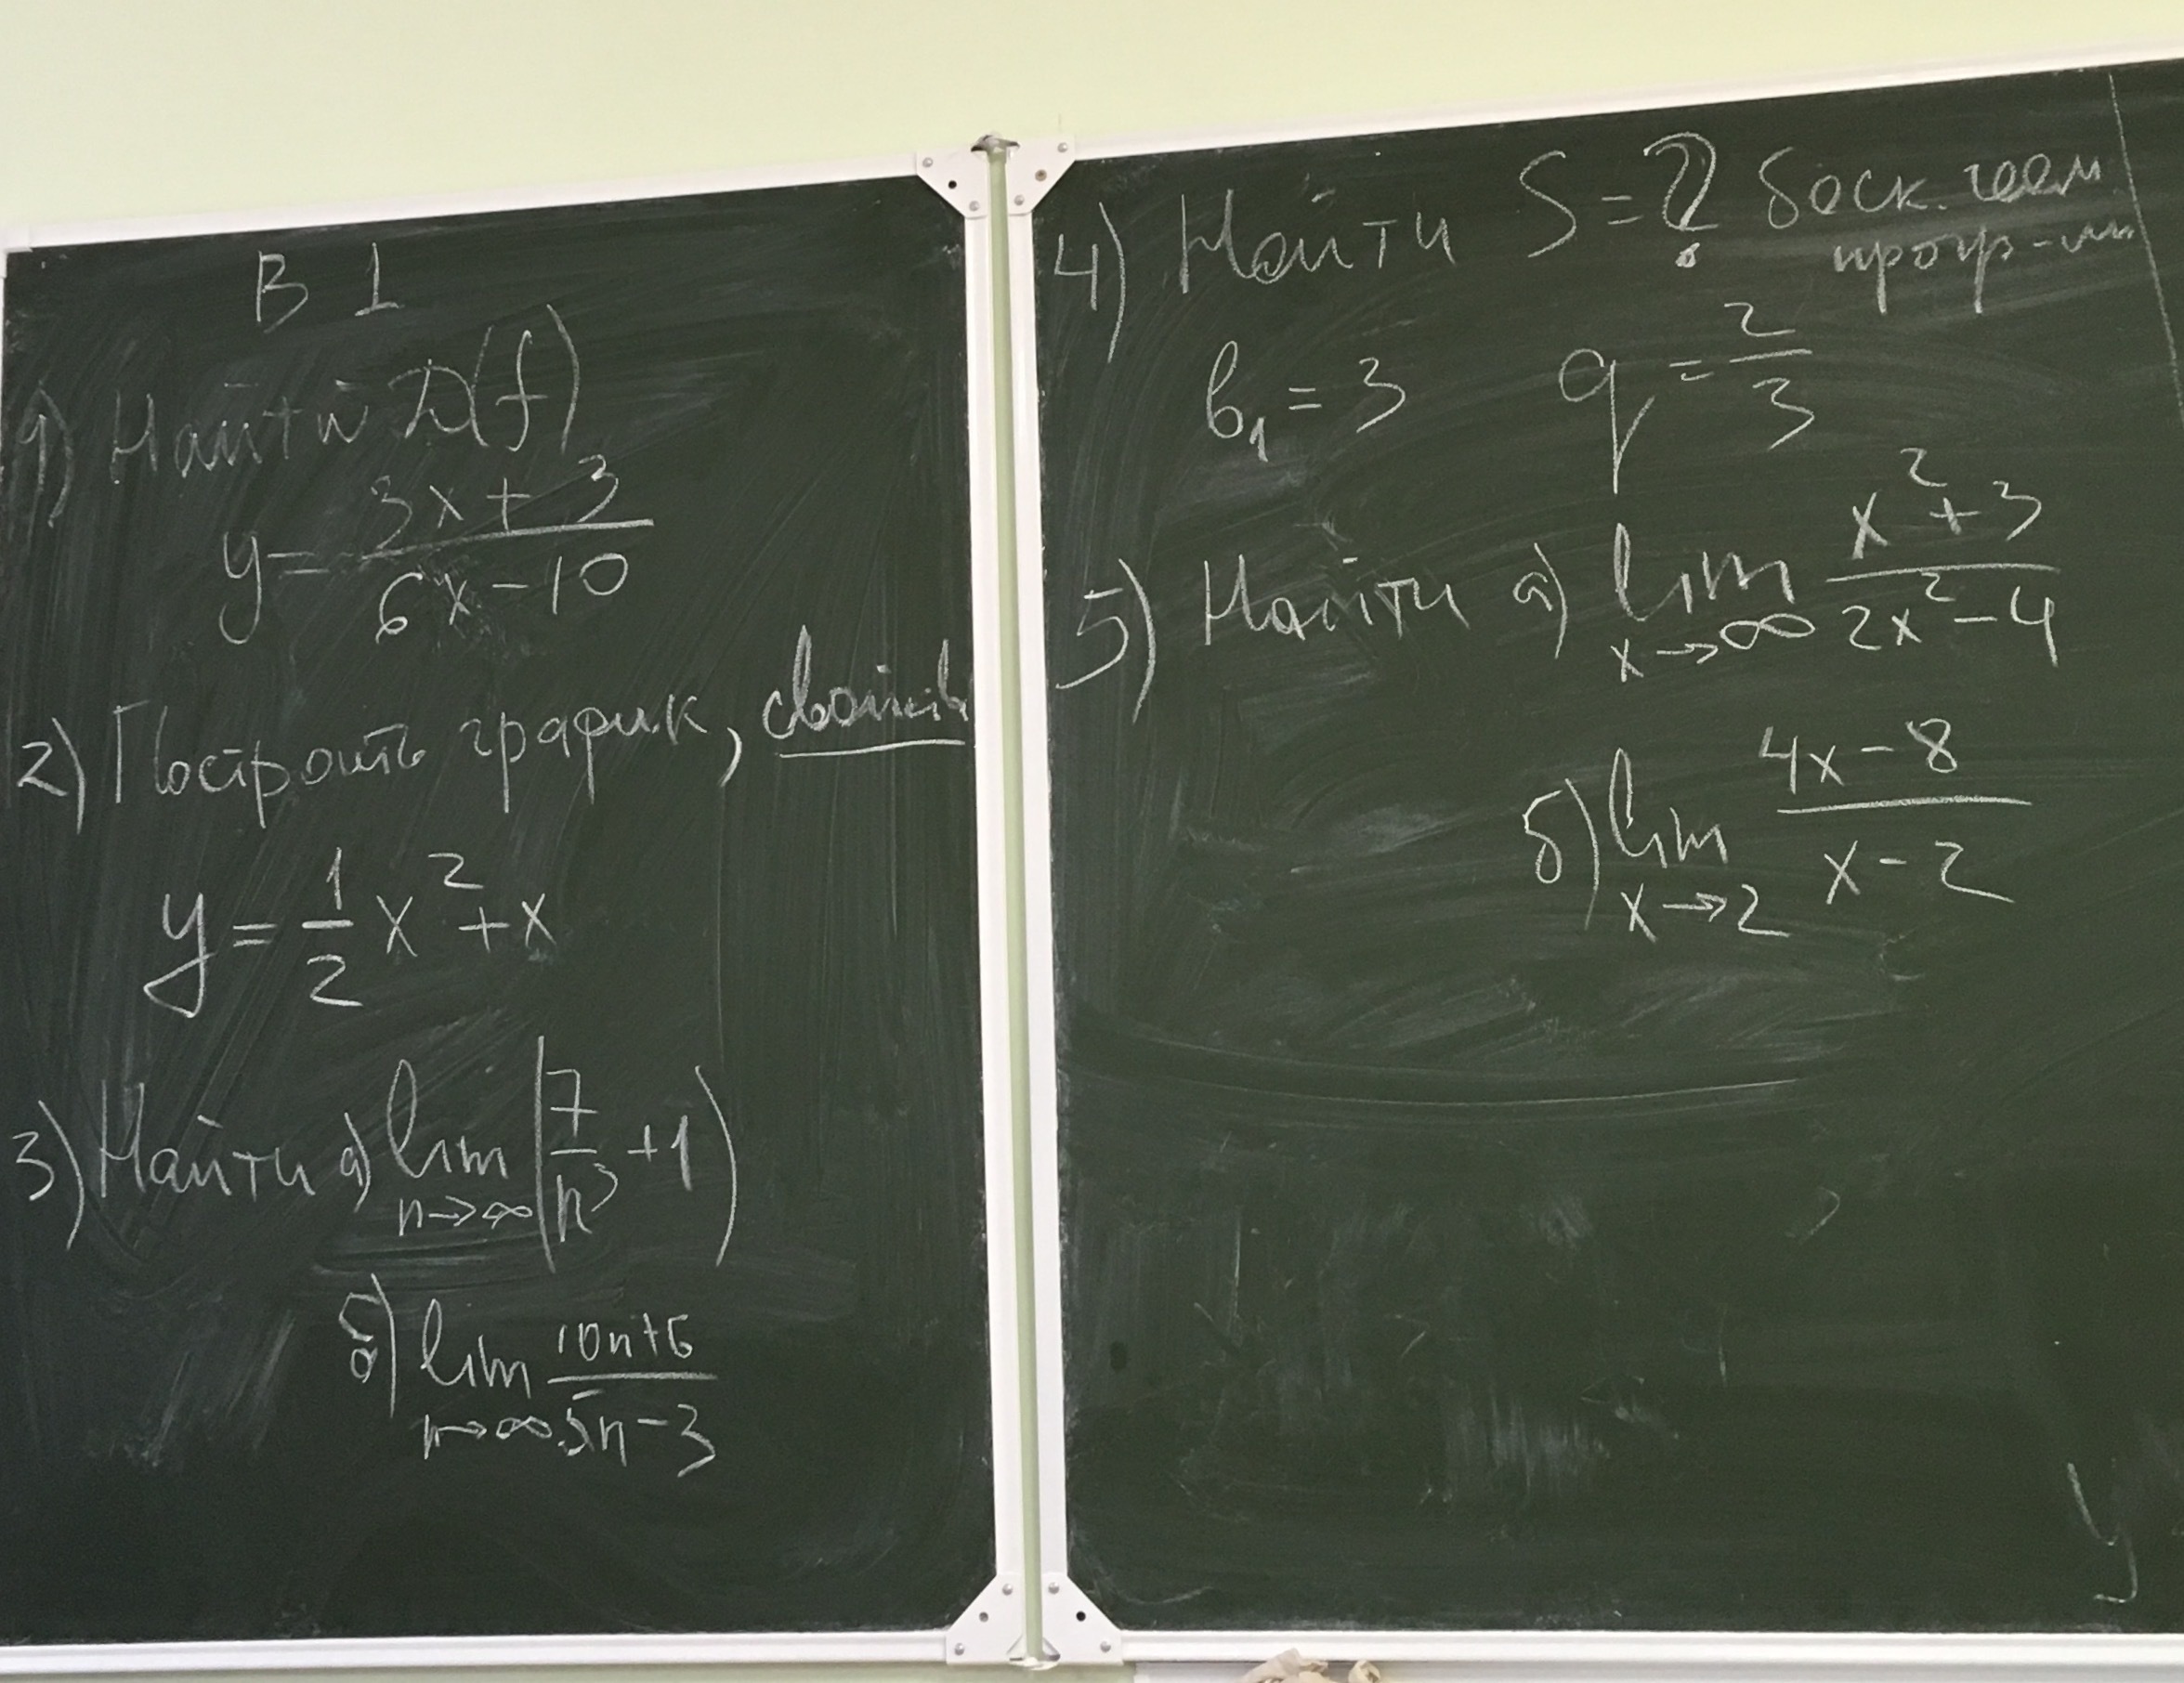 В 1
1) Найти D(f)
y = (3x + 3)/(6x - 10)
2) Построить график, свойств
y = 1/2 x² + x
3) Найти а) lim n→∞ (7/n³ + 1)
б) lim n→∞ (10n+6)/(5n-3)
4) Найти S = ? беск. геом
прогр-ии
b₁ = 3 q = 2/3
5) Найти а) lim x→∞ (x² + 3)/(2x² - 4)
б) lim x→2 (4x - 8)/(x - 2)
y